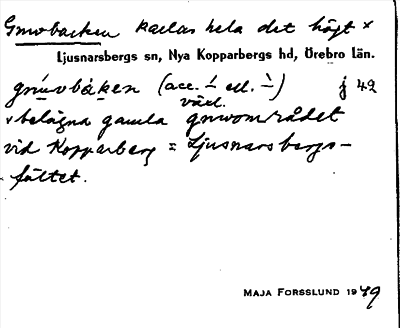 Gruvbacken kallas hela det högt ×
Ljusnarsbergs sn, Nya Kopparbergs hd, Örebro län.
gruvbaken (acc. ´ ell. `) j 42
växl.
× belägna gamla gruvområdet
vid Kopparberg = Ljusnarsbergs-
fältet.
MAJA FORSSLUND 1949